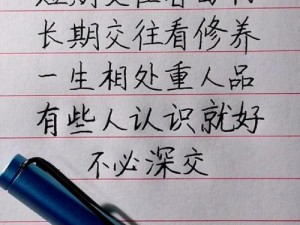 长期交往看修养
一生相处重人品
有些人认识就好
不必深交